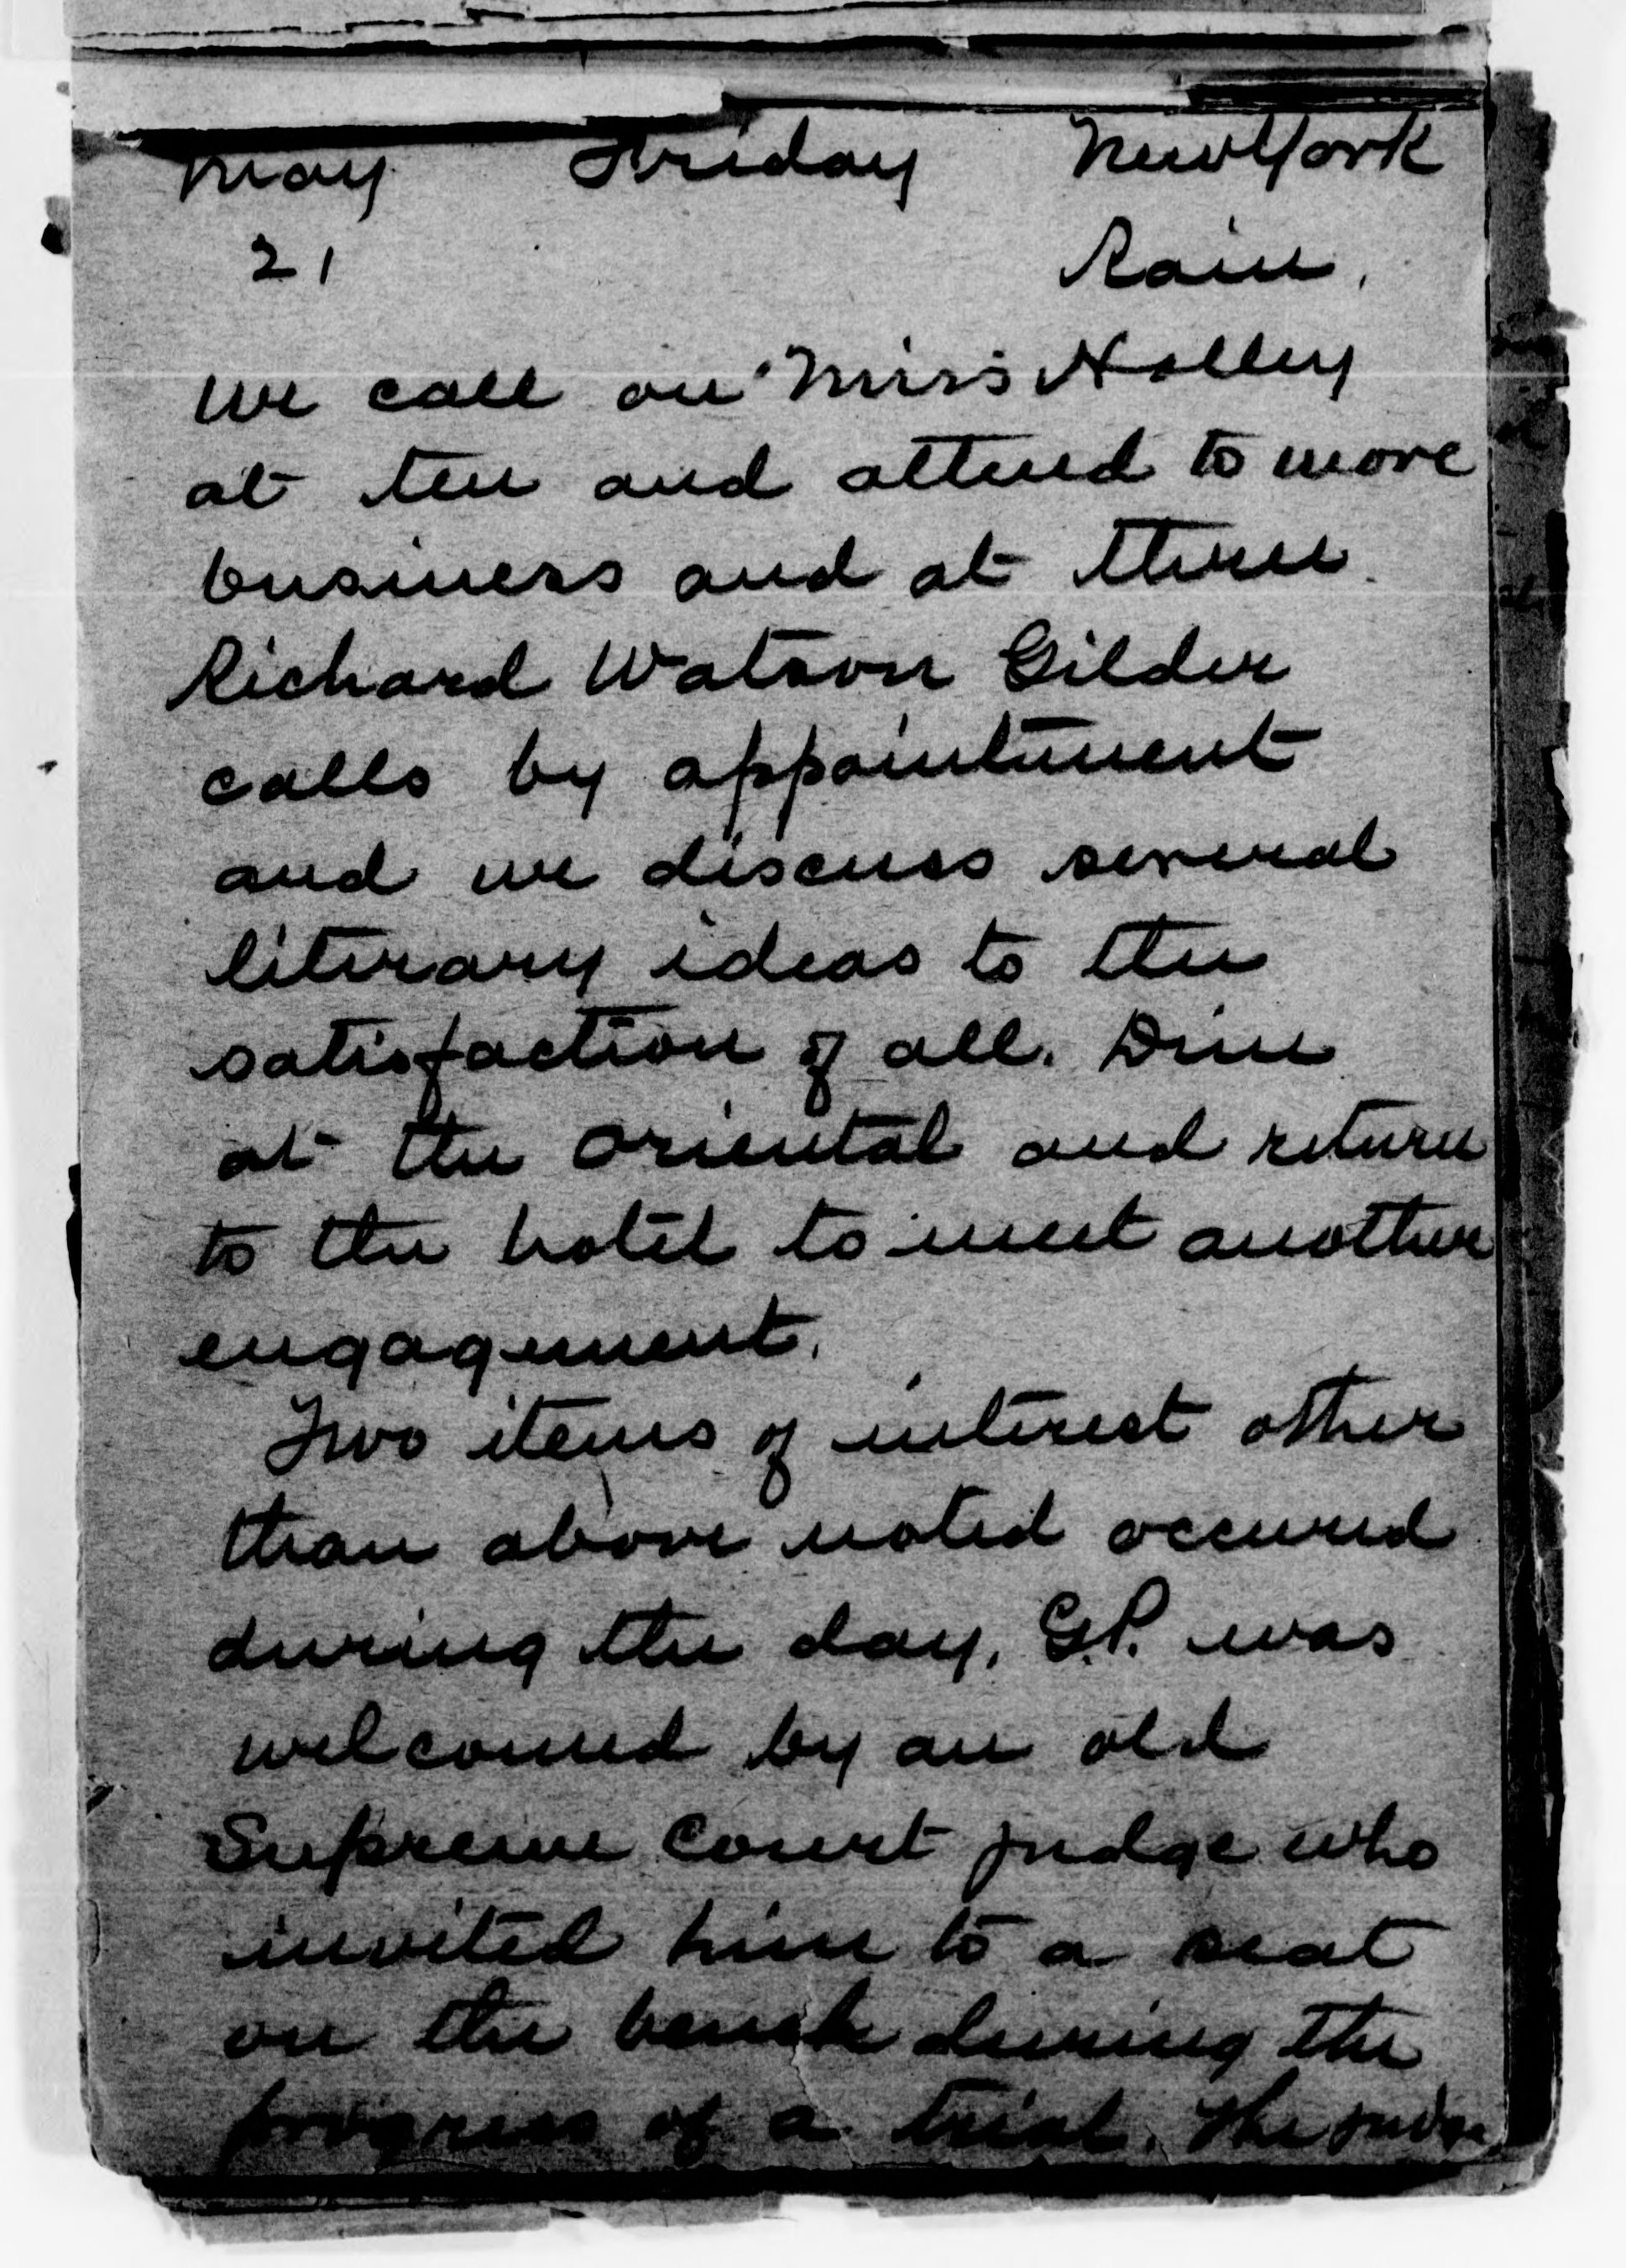 May Friday New York
21 Rain.
We call on Miss Holley
at ten and attend to more
business and at three
Richard Watson Gilder
calls by appointment
and we discuss several
literary ideas to the
satisfaction of all. Dine
at the Oriental and return
to the hotel to meet another
engagement.
Two items of interest other
than above noted occured
during the day. G.P. was
welcomed by an old
Supreme Court judge who
invited him to a seat
on the bench during the
progress of a trial. The judge